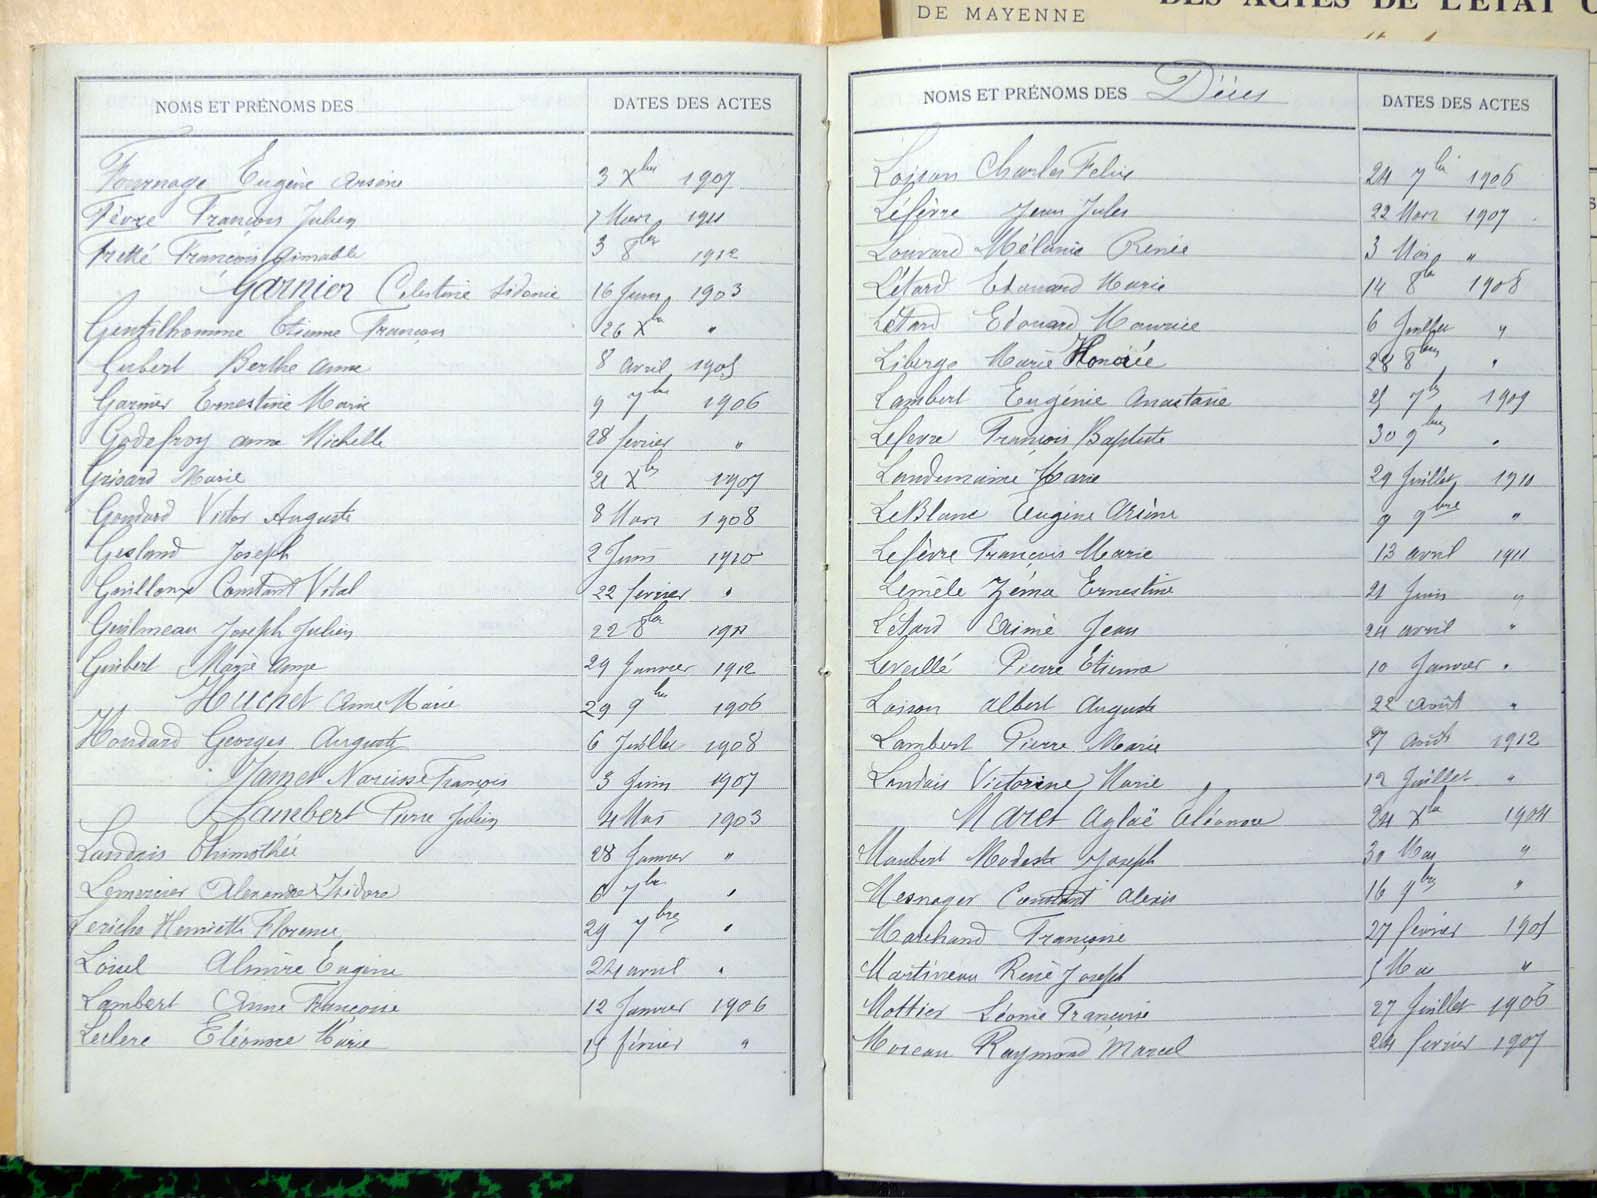 DE MAYENNE
DES ACTES DE L'ÉTAT
NOMS ET PRÉNOMS DES DATES DES ACTES
Fournage Eugène Arsène 3 Xbre 1907
Fèvre François Julien 7 Mars 1911
Fretté François Aimable 3 8bre 1912
Garnier Celestine Sidonie 16 Juin 1903
Gentilhomme Etienne François 26 Xbre "
Gubert Berthe Anne 8 avril 1905
Garnier Ernestine Marie 9 7bre 1906
Godefroy anne Michelle 28 février "
Grisard Marie 21 Xbre 1907
Goudard Victor Auguste 8 Mars 1908
Gesland Joseph 2 Juin 1910
Guilloux Constant Vital 22 février "
Guilmeau Joseph Julien 22 8bre 1911
Guibert Marie Anne 29 Janvier 1912
Huchet Anne Marie 29 9bre 1906
Houdard Georges Auguste 6 Juillet 1908
Jamet Narcisse François 3 Juin 1907
Lambert Pierre Julien 4 Mai 1903
Landais Thimothée 28 Janvier "
Lemercier Alexandre Isidore 6 7bre "
Leriche Henriette Florence 29 7bre "
Loisel Almire Eugène 24 avril "
Lambert Anne Françoise 12 Janvier 1906
Leclerc Eléonore Marie 15 février "
NOMS ET PRÉNOMS DES Décès DATES DES ACTES
Loison Charles Felix 24 7bre 1906
Léfèvre Jean Jules 22 Mars 1907
Louvard Mélanie Renée 3 Mai "
Létard Edouard Marie 14 8bre 1908
Létard Edouard Maurice 6 Juillet "
Liberge Marie Honorée 28 8bre "
Lambert Eugénie Anastasie 25 7bre 1909
Lefevre François Baptiste 30 9bre "
Landemaine Marie 29 Juillet 1910
LeBlanc Eugène Arsène 9 9bre "
Lefèvre François Marie 13 avril 1911
Lemêle Zéma Ernestine 21 Juin "
Létard Aimé Jean 24 avril "
Leveillé Pierre Étienne 10 Janvier "
Loison Albert Auguste 22 Août "
Lambert Pierre Marie 27 Août 1912
Landais Victorine Marie 12 Juillet "
Maret Aglaë Eléonore 24 Xbre 1904
Maubert Modeste Joseph 30 Mai "
Mesnager Constant Alexis 16 9bre "
Marchand Françoise 27 février 1905
Martineau René Joseph 5 Mai "
Mottier Léonie Françoise 27 Juillet 1906
Moreau Raymond Marcel 24 fevrier 1907